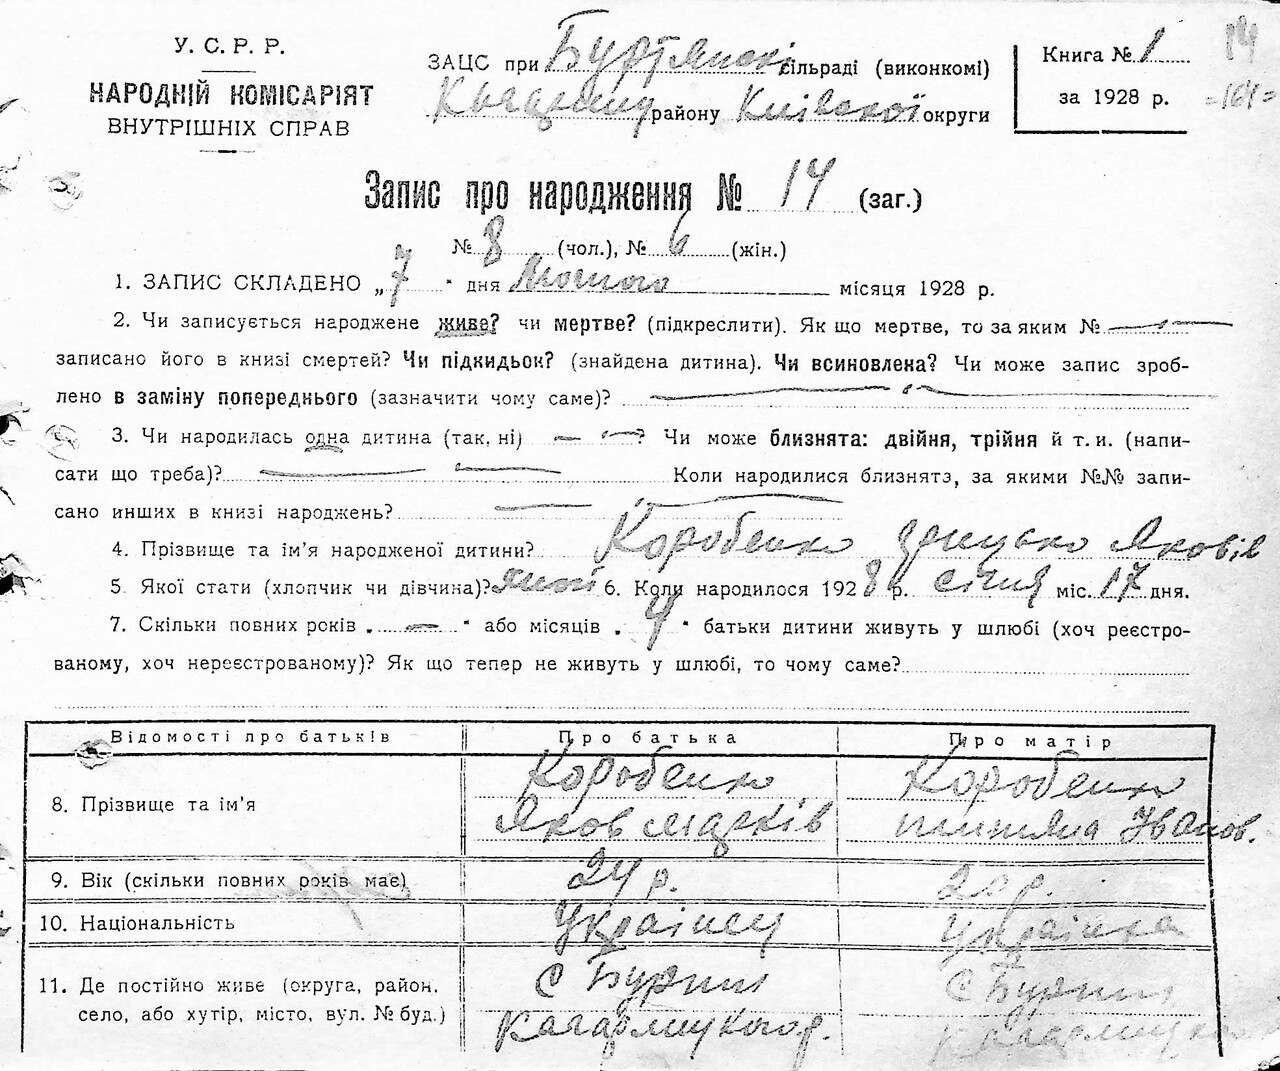 У. С. Р. Р.
НАРОДНІЙ КОМІСАРІЯТ
ВНУТРІШНІХ СПРАВ
ЗАЦС при Буртянскі сільраді (виконкомі)
району Київскої округи
Книга № 1
за 1928 р.
14
=164=
Запис про народження № 14 (заг.)
№ 8 (чол.), № 6 (жін.)
1. ЗАПИС СКЛАДЕНО „7" дня Лютого місяця 1928 р.
2. Чи записується народжене живе? чи мертве? (підкреслити). Як що мертве, то за яким №
записано його в книзі смертей? Чи підкидьок? (знайдена дитина). Чи всиновлена? Чи може запис зроб-
лено в заміну попереднього (зазначити чому саме)?
3. Чи народилась одна дитина (так, ні) — ? Чи може близнята: двійня, трійня й т. и. (напи-
сати що треба)? Коли народилися близнята, за якими №№ запи-
сано инших в книзі народжень?
4. Прізвище та ім'я народженої дитини? Коробенко Грицько Яковів
5. Якої стати (хлопчик чи дівчина)? 6. Коли народилося 1928 р. січня міс. 17 дня.
7. Скільки повних років „—" або місяців „4" батьки дитини живуть у шлюбі (хоч реєстро-
ваному, хоч нереєстрованому)? Як що тепер не живуть у шлюбі, то чому саме?
Відомості про батьків Про батька Про матір
8. Прізвище та ім'я Коробенко Яков Марків Коробенко Іванов.
9. Вік (скільки повних років має) 24 р. р.
10. Національність Українец Українка
11. Де постійно живе (округа, район, с Бурти с Бурти
село, або хутір, місто, вул. № буд.) Кагарлицького р. Кагарлицьког